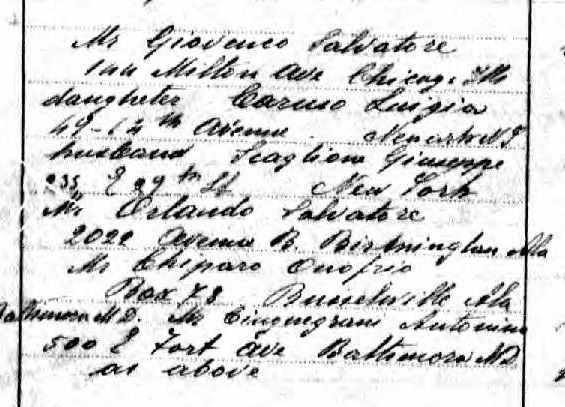 Mr Giovenco Salvatore
144 Milton Ave Chicago Ills
daughter Caruso Luigia
49-12th Avenue Newark NJ
husband Scaglione Giuseppe
235 E 29th St New York
Mr Orlando Salvatore
2022 Avenue B. Birmington Ala
Mr Chiparo Onofrio
Box 78 Russelville Ala
Baltimora MD. Mr Cinquegrani Antonino
500 E Fort Ave Baltimora MD
as above